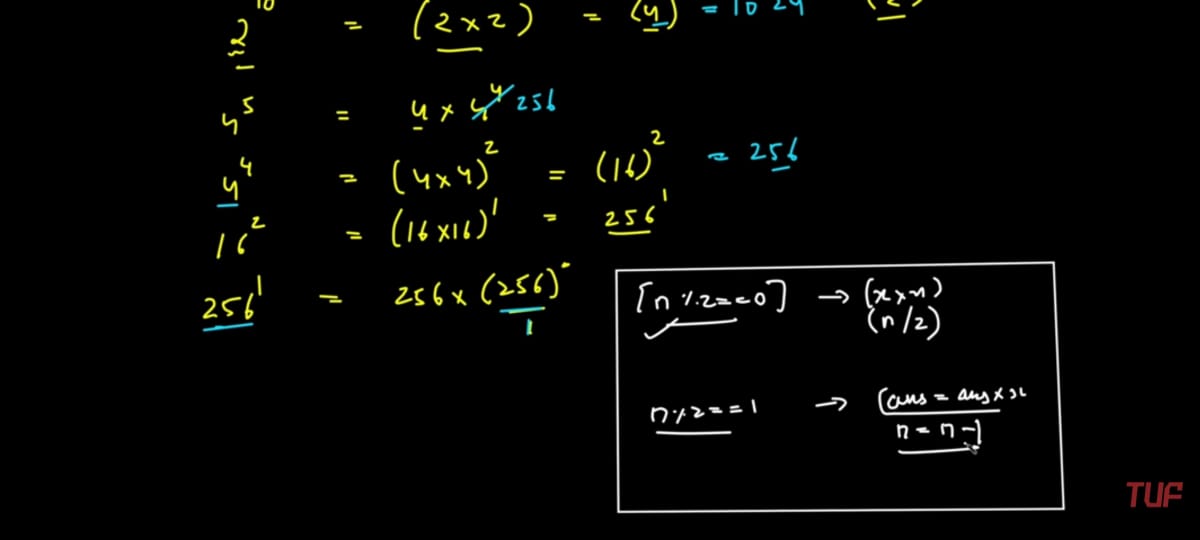 2^10 = (2x2) = (4) = 1024
4^5 = 4 x 4^4 256
4^4 = (4x4)^2 = (16)^2 = 256
16^2 = (16x16)^1 = 256^1
256^1 = 256 x (256)^
1
[n%2==0] → (x x n)
(n/2)
n%2==1 → (ans = ans x x
n = n-1
TUF